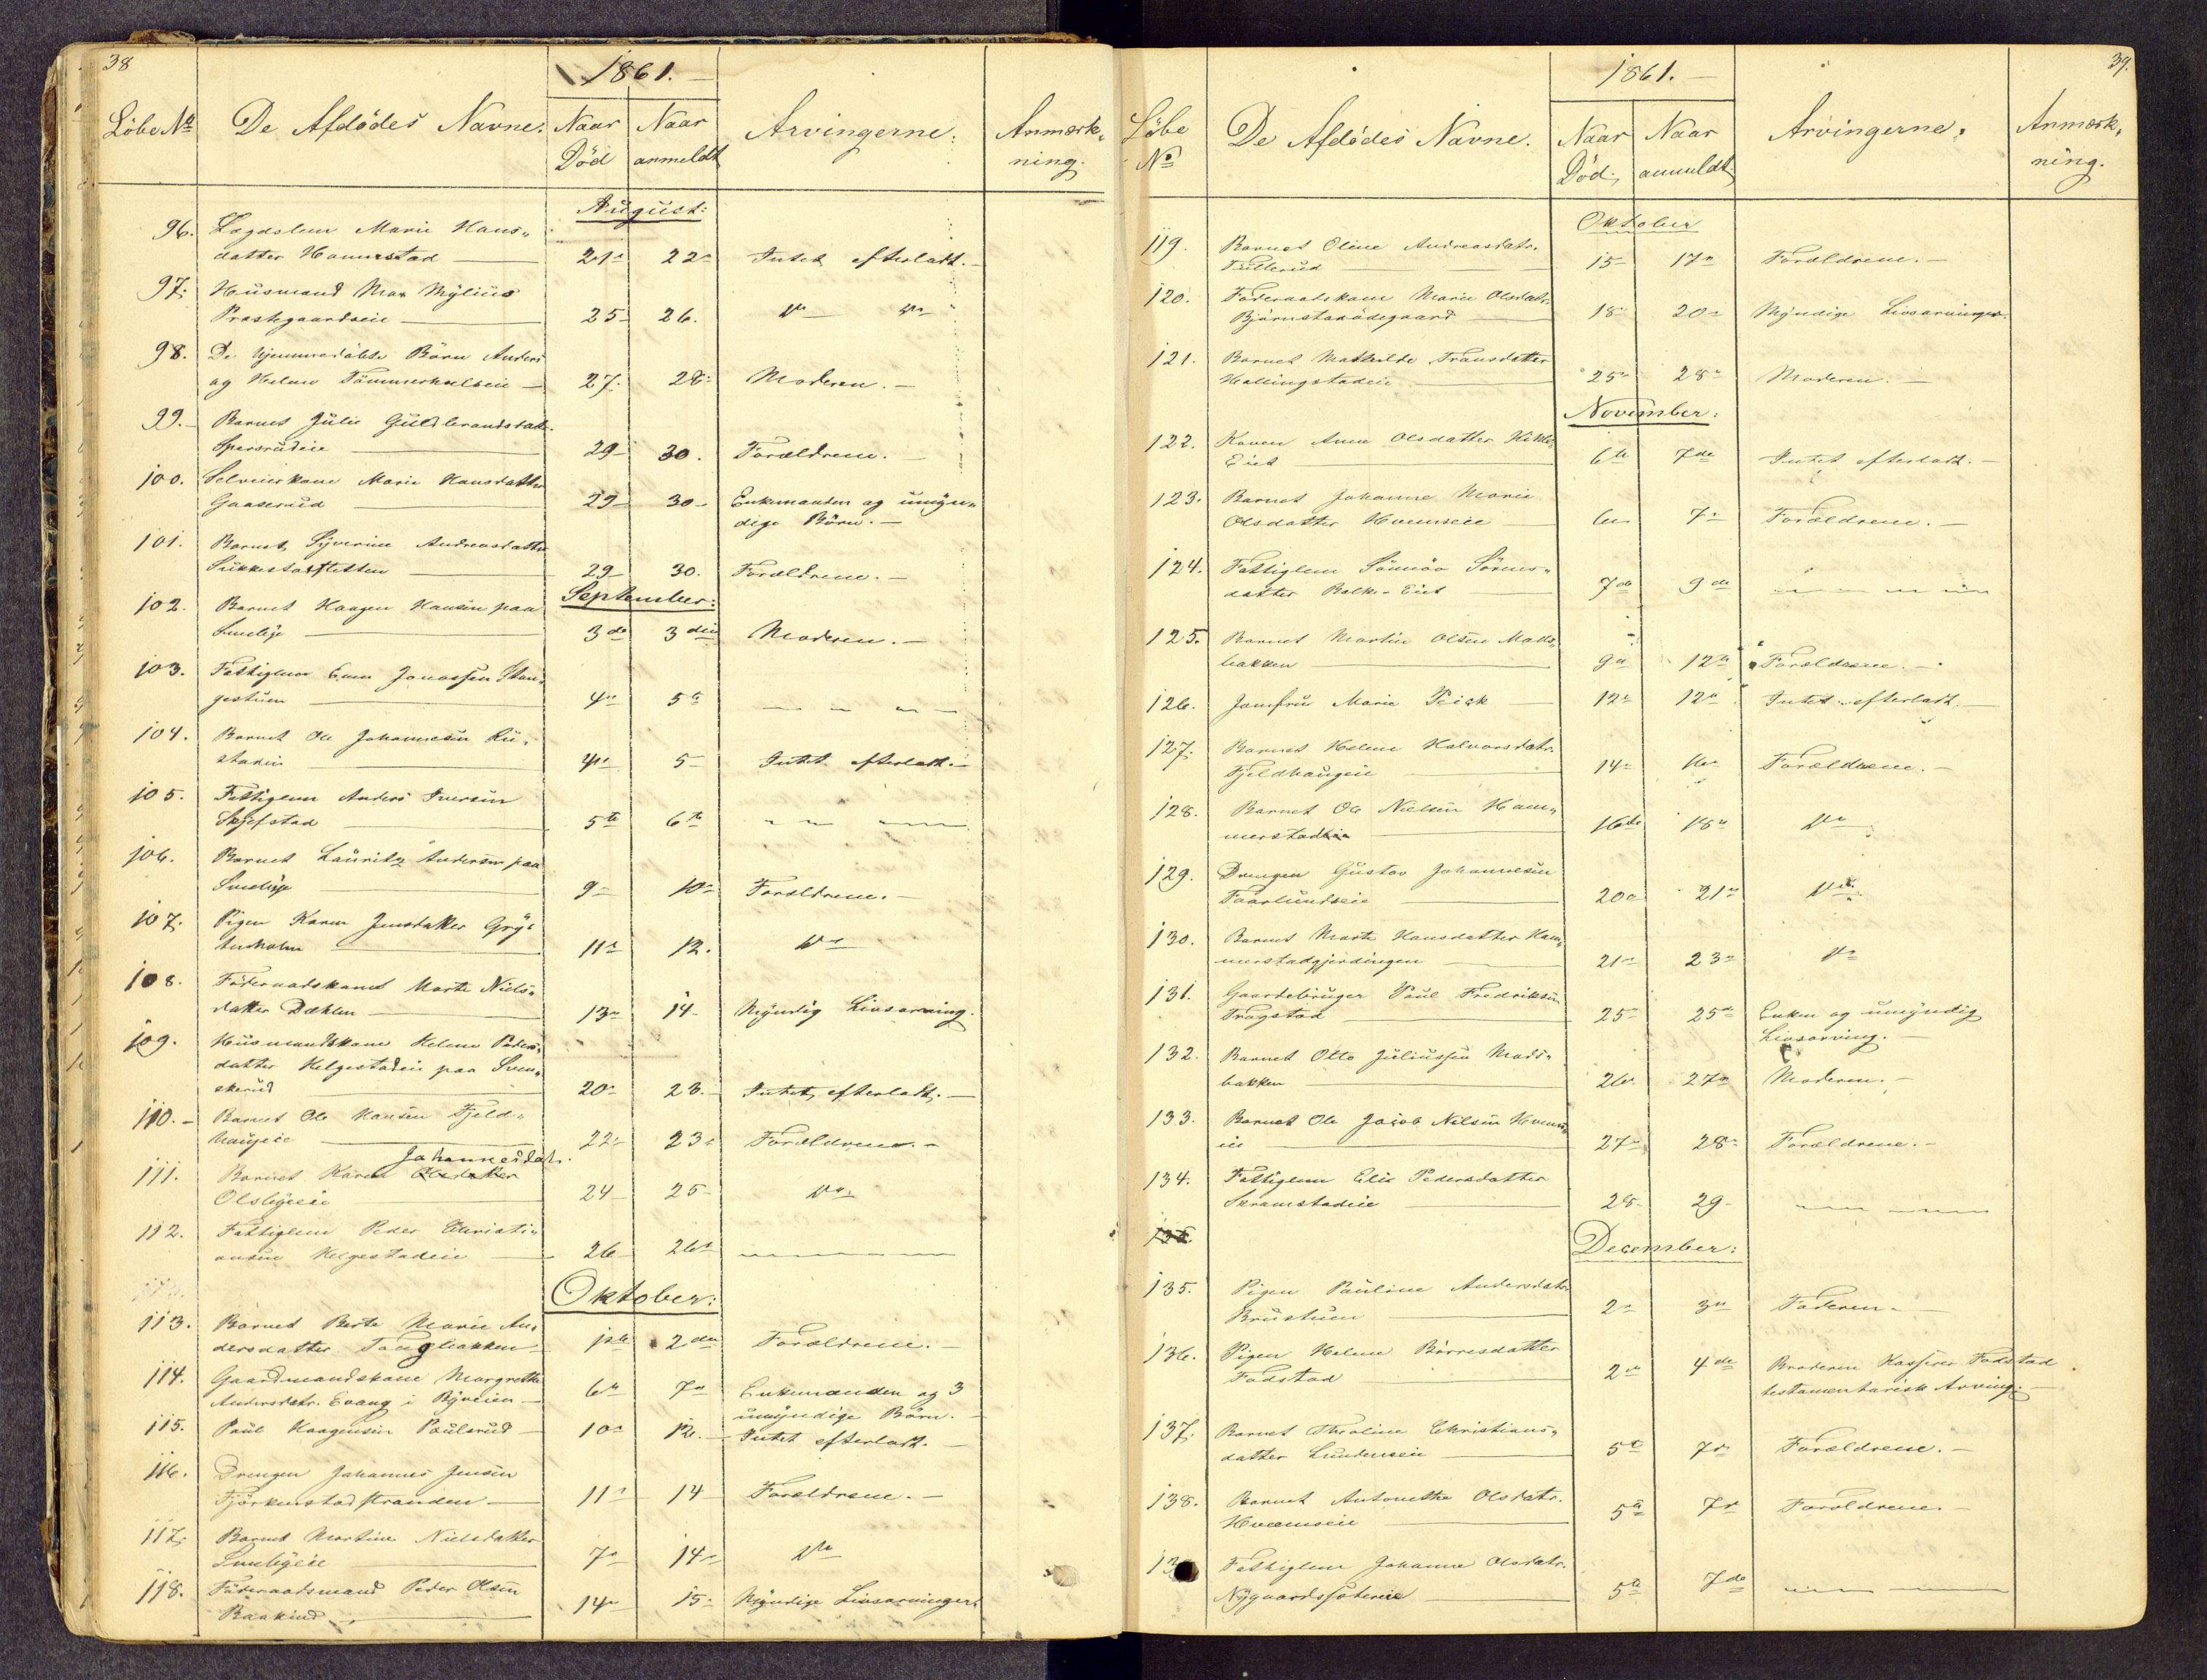 38
1861.
Löbe No De Afdödes Navne. Naar Död Naar anmeldt Arvingerne. Anmærkning.
August:
96. Lægdslem Marie Hans„
datter Hammerstad 21 22 Intet efterladt.
97. Huusmand Max Mylius
Præstegaardseie 25 26. do do
98. De hjemmedöbte Börn Anders
og Helene Tömmerhuelseie 27. 28 Moderen.
99. Barnet Julie Guldbrandsdatt.
Sparrudeie 29 30. Forældrene.
100. Selveierkone Marie Hansdatter
Gaaserud 29 30 Enkemanden og umyn„
dige Börn.
101. Barnet Syverine Andreasdatter
Sukkestadsletten 29 30. Forældrene.
September:
102. Barnet Haagen Hansen paa
Smeby 3de 3die Moderen.
103. Fattiglem Even Jonassen Stan„
gestuen 4 5
104. Barnet Ole Johannesen Ru„
stadeie 4 5 Intet efterladt.
105. Fattiglem Anders Iversen
Skjefstad 5te 6te
106. Barnet Lauritz Andersen paa
Smeby 9 10 Forældrene.
107. Pigen Karen Jensdatter Gry„
tesholm 11 12. do
108. Föderaadskone Marte Niels„
datter Dæhlen 13 14 Myndig Livsarving.
109. Huusmandskone Helene Peders„
datter Helgestadeie paa Sven„
skerud 20 23. Intet efterladt.
110. Barnet Ole Hansen Fjeld„
haugeie 22 23 Forældrene.
Johannesdatr.
111. Barnet Karen Olsdatter
Olsbyeie 24 25 do
112. Fattiglem Peder Christi„
ansen Helgestadeie 26 26
Oktober:
113. Barnet Berte Marie An„
dersdatter Tangbakken 1ste 2den Forældrene.
114. Gaardmandskone Margrethe
Andersdatr. Evang i Byveien 6 7 Enkemanden og 3
umyndige Börn.
115. Paul Haagensen Paulsrud 10 12. Intet efterladt.
116. Drengen Johannes Jensen
Tjörkenstadstranden 11 14 Forældrene.
117. Barnet Martine Nielsdatter
Smebyeie 7 14 do
118. Föderaadsmand Peder Olsen
Baakind 14 15 Myndige Livsarvinger.
39.
1861.
Löbe No De Afdödes Navne. Naar Död. Naar anmeldt Arvingerne. Anmærkning.
Oktober
119. Barnet Oline Andreasdatr.
Tullerud 15 17 Forældrene.
120. Föderaadskone Marie Olsdatr.
Björnstadödegaard 18 20 Myndige Livsarvinger.
121. Barnet Mathilde Fransdatter
Hallingstadeie 25 28 Moderen.
November:
122. Konen Anne Olsdatter Hikle
Eiet 6te 7de Intet efterladt.
123. Barnet Johanne Marie
Olsdatter Hvamseie 6 7 Forældrene.
124. Fattiglem Sönnöv Sörens„
datter Balke-Eiet 7de 9de
125. Barnet Martin Olsen Mads„
bakken 9 12 Forældrene.
126. Jomfru Marie Peick 12 12 Intet efterladt.
127. Barnet Helene Halvorsdatr.
Fjeldhaugeie 14 16 Forældrene.
128. Barnet Ole Nielsen Ham„
merstadeie 16de 18 do
129. Drengen Gustav Johannesen
Faarlundseie 20 21 do
130. Barnet Marte Hansdatter Ham„
merstadgjerdingen 21 23 do
131. Gaardebruger Poul Fredriksen
Fragstad 25 25 Enken og umyndig
Livsarving.
132. Barnet Otto Juliussen Mads„
bakken 26 27 Moderen.
133. Barnet Ole Jacob Nilsen Hvams„
eie 27 28 Forældrene.
134. Fattiglem Elie Pedersdatter
Skramstadeie 28 29
135.
December:
135. Pigen Pauline Andersdatr.
Brustuen 2 3 Faderen.
136. Pigen Helene Börresdatter
Fodstad 2 4de Broderen Kasserer Fodstad
testamentarisk Arving.
137. Barnet Theoline Christians„
datter Lundenseie 5 7 Forældrene.
138. Barnet Antonette Olsdatr.
Hvamseie 5 7 Forældrene.
13 Fattiglem Johanne Olsdatr.
Nygaardssætereie 5 7de